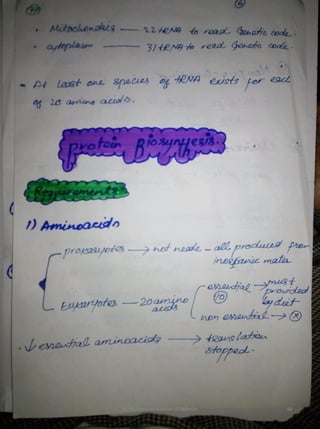 • Mitochondria — 22 tRNA to read Genetic code.
- cytoplasm — 31 tRNA to read Genetic code.
- At least one species of tRNA exists for each
of 20 amino acids.
Protein Biosynthesis.
Requirements
1) Aminoacids
prokaryotes → not neede - all produced from
inorganic mater
Eukaryotes — 20 amino acids
essential → must provided by diet
(10)
non essential → (x)
. ↓ essential aminoacids → translation
stopped.